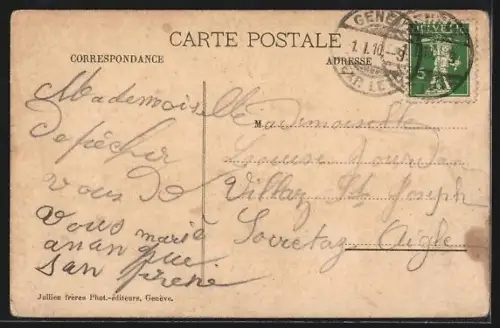 CARTE POSTALE
CORRESPONDANCE
ADRESSE
HELVETIA
5
GENÈVE
1. I. 10.–9
EXP. LET
Mademoiselle
Depecher
vous De
vous marié
avan que
san prene
Mademoiselle
Louise Jourdan
Villaz St Joseph
Aigle
Jullien frères Phot.-éditeurs, Genève.